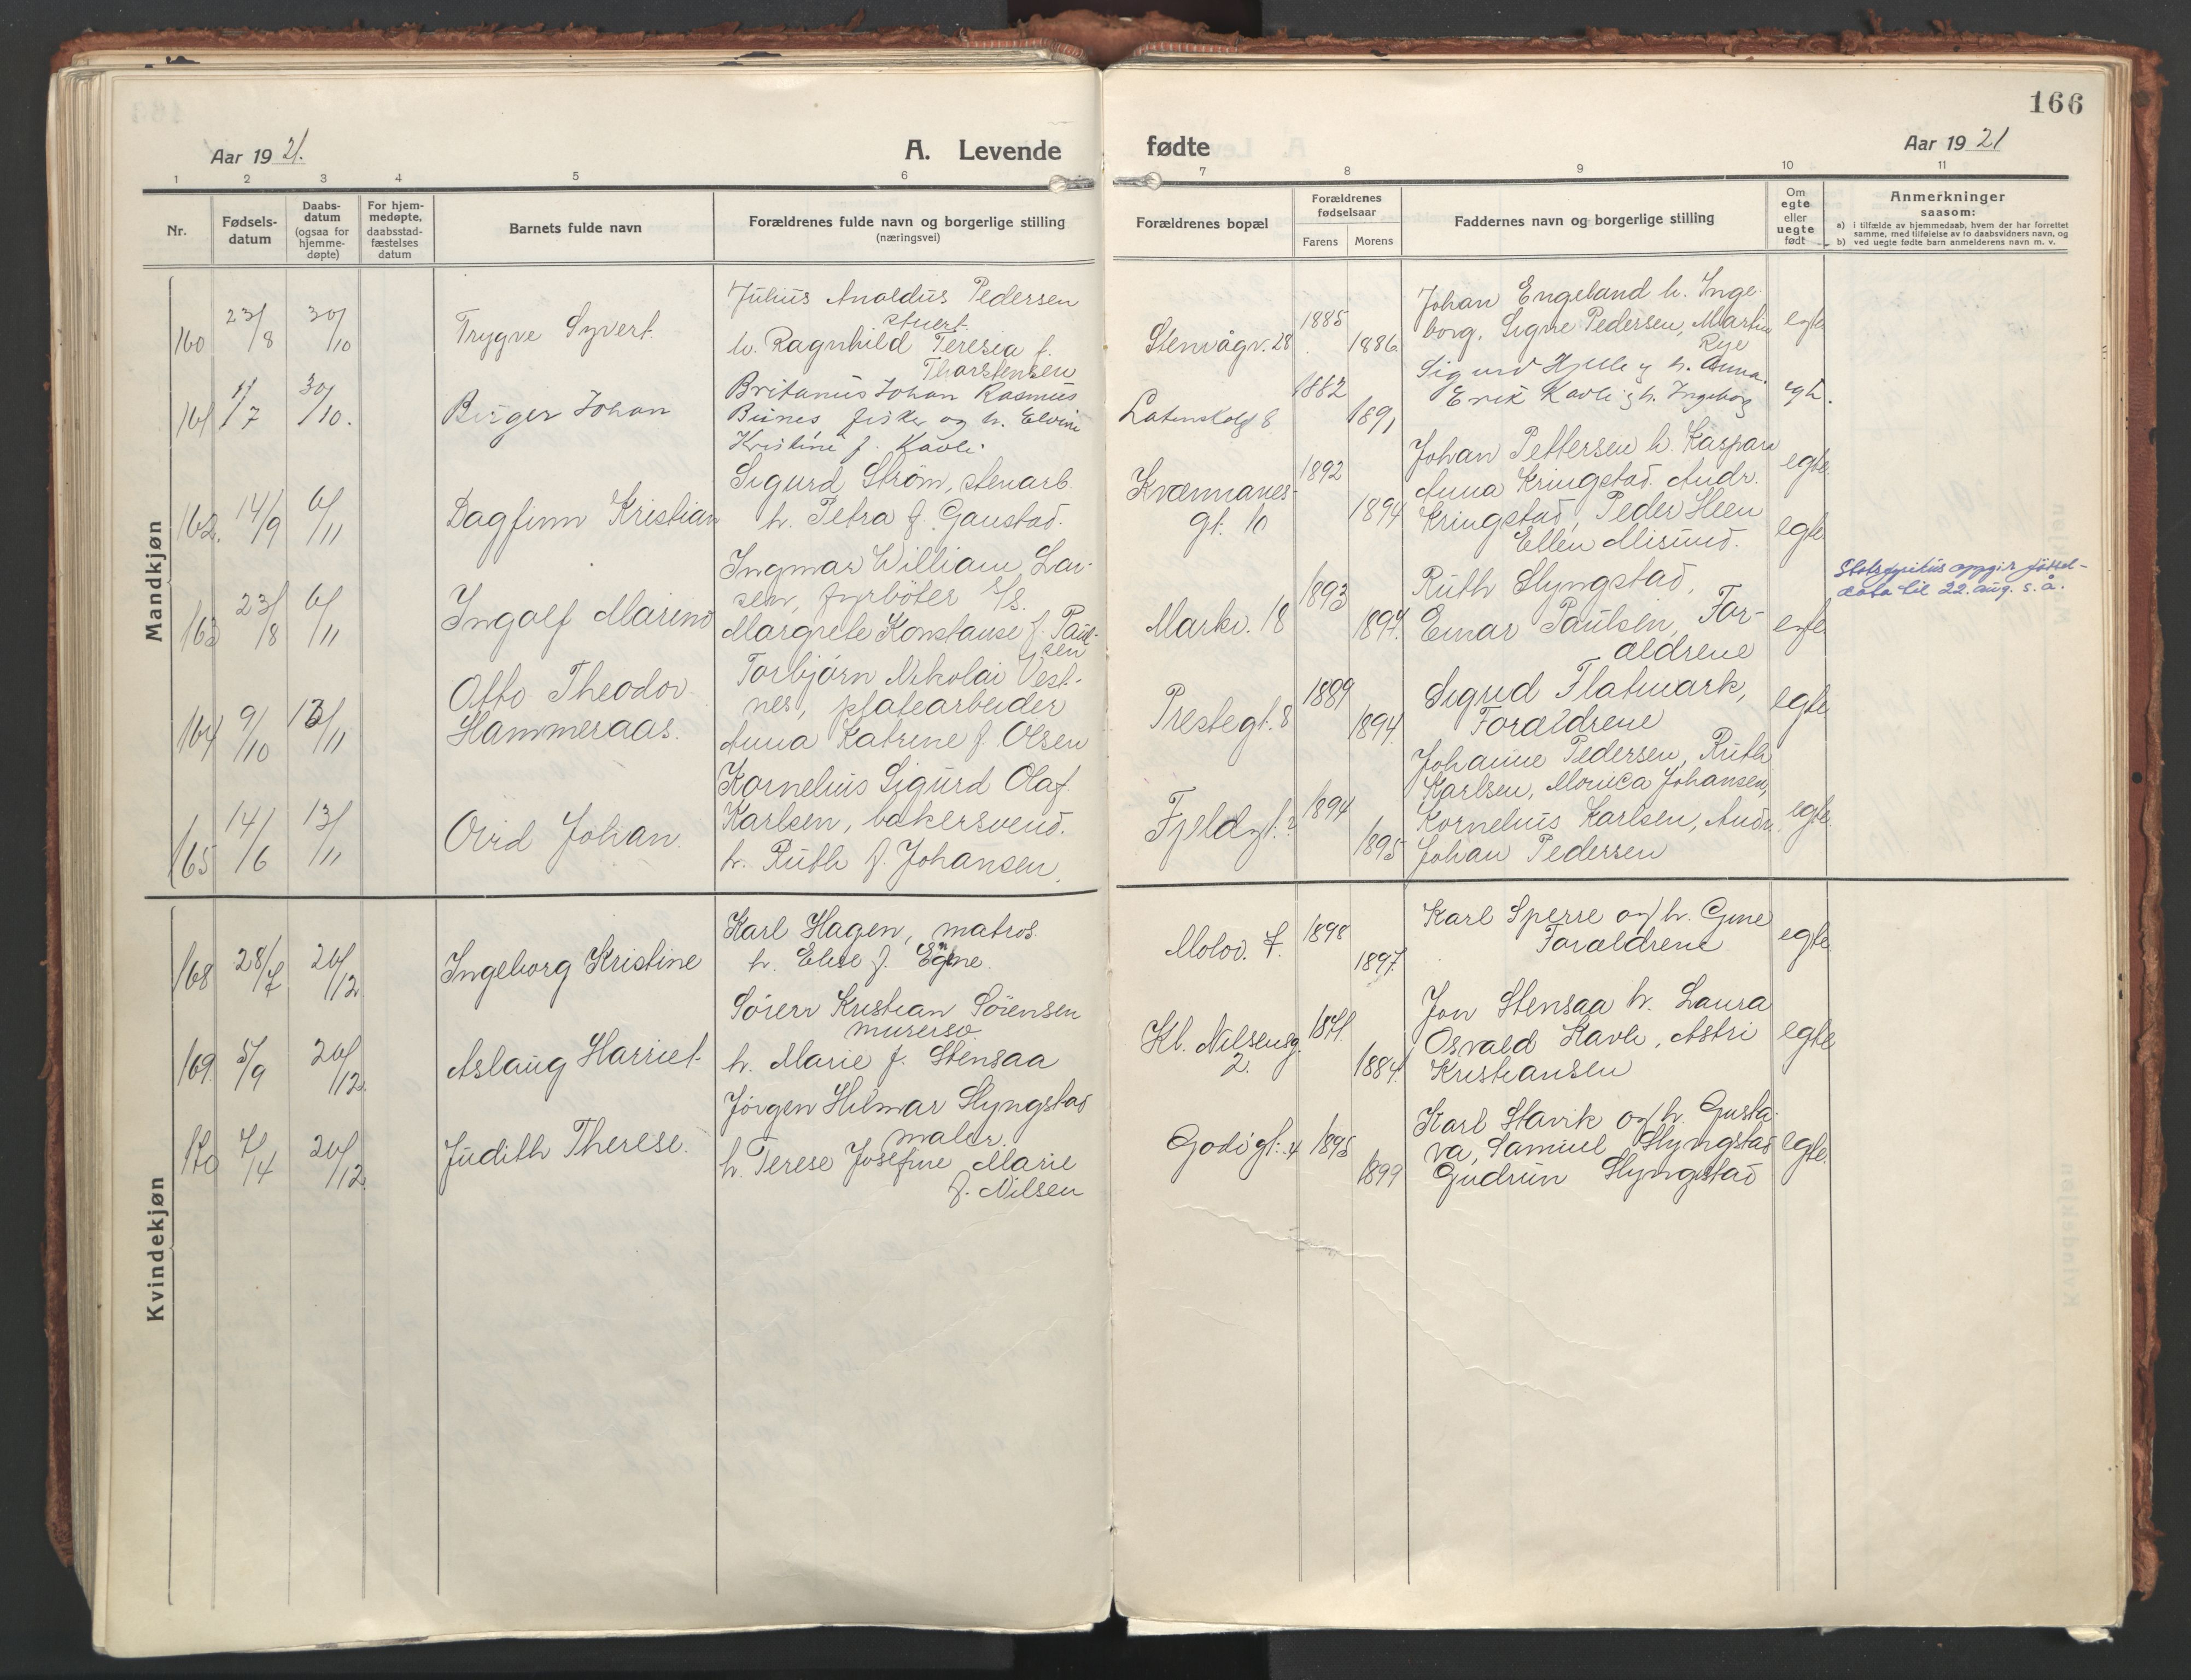 166
Aar 1921.
A. Levende
fødte
Aar 1921
1 2 3 4 5 6 7 8 9 10 11
Nr.
Fødsels-
datum
Daabs-
datum
(ogsaa for
hjemme-
døpte)
For hjem-
medøpte,
daabsstad-
fæstelses
datum
Barnets fulde navn
Forældrenes fulde navn og borgerlige stilling
(næringsvei)
Forældrenes bopæl
Forældrenes
fødselsaar
Farens Morens
Faddernes navn og borgerlige stilling
Om
egte
eller
uegte
født
Anmerkninger
saasom:
a) i tilfælde av hjemmedaab, hvem der har forrettet
samme, med tilføielse av to daabsvidners navn, og
b) ved uegte fødte barn anmelderens navn m. v.
Mandkjøn
160 23/8 30/10
Trygve Syvert
Julius Analdus Pedersen
stuert
h. Ragnhild Teresia f.
Thorstensen
Stenvågv. 28
1885
1886
Johan Engeland h. Inge-
borg, Signe Pedersen, Martin
Rye
egte
161 1/7 30/10.
Birger Johan
Britanus Johan Rasmus
Bunes fisker og h. Elvine
Kristine f. Kavli.
Latinskolg 8
1882
1891
Sigurd Hjelle g h. Anna.
Erik Kavli g h. Ingeborg
egt.
162. 14/9 6/11
Dagfinn Kristian
Sigurd Strøm, stenarb.
h. Petra f. Gaustad.
Kvænnanes-
gt. 10
1892
1894
Johan Pettersen h. Kaspara
Anna Kringstad. Andr.
Kringstad, Peder Heen
Ellen Misund.
egte
egte
163 23/8 6/11
Ingolf Marino
Ingmar William Lar-
sen, fyrböter
Margrete Konstanse f. Paul-
sen
Markv. 18
1893
1897.
Ruth Slyngstad,
Einar Paulsen, For-
ældrene
egte
Statsfysikus oppgir fødsel-
dato til 22. aug. s. å.
164 9/10 13/11
Otto Theodor
Hammeraas.
Torbjörn Nikolai Vest-
nes, platearbeider
Anna Katrine f. Olsen
Prestegt. 8
1889
1894.
Sigrid Flatmark,
Forældrene
egte
165 14/6 13/11
Ovid Johan.
Kornelius Sigurd Olaf
Karlsen, bakersvend.
h. Ruth f. Johansen.
Fjeldgt. 2
1894
1895
Johanne Pedersen, Ruth
Karlsen, Monica Johansen,
Kornelius Karlsen, Andr.
Johan Pedersen
egte.
Kvindekjøn
168 28/7 26/12
Ingeborg Kristine
Karl Hagen, matros.
h. Elise f.
Molov. 7.
1898
1897.
Karl Sperre og h. Gine
Forældrene
egte
169 5/9 26/12.
Aslaug Harriet.
Sörenn Kristian Sörensen
murersv.
h. Marie f. Stensaa
Kl. Nilsensg.
2.
1871.
1884.
Jon Stensaa h. Laura
Osvald Kavli, Astri
Kristiansen
egte
170 7/14 26/12
Judith Therese.
Jörgen Hilmar Slyngstad
maler.
h. Terese Josefine Marie
f. Nilsen
Godögt. 4
1895
1899
Karl Stavik og h. Gusta-
va, Samuel Slyngstad
Gudrun Slyngstad
egte.